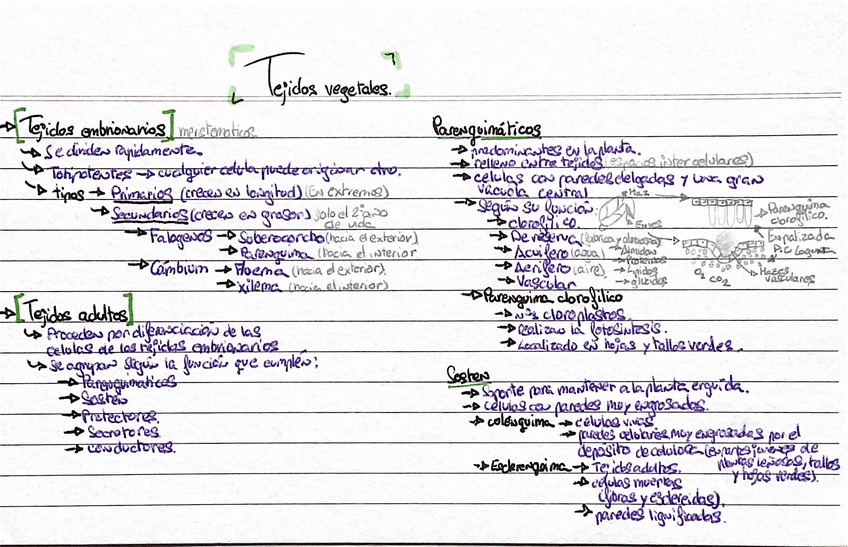 Tejidos vegetales.
→ [Tejidos embrionarios] meristematicos
↳ Se dividen rapidamente.
↳ Totipotentes → cualquier celula puede originar otro.
↳ tipos → Primarios (crecen en longitud) (En extremos)
↳ Secundarios (crecen en grosor) solo el 2º año
de vida
→ Falogenos → Suberocorcho (hacia el exterior)
→ Parenquima (hacia el interior
→ Cámbium → Floema (hacia el exterior)
→ xilema (hacia el interior)
→ [Tejidos adultos]
↳ Proceden por diferenciación de las
células de los tejidos embrionarios
↳ Se agrupan según la función que cumplen:
→ Parenquimaticos
→ Sosten
→ Protectores
→ Secretores
→ conductores.
Parenquimáticos
→ predominantes en la planta.
→ relleno entre tejidos (espacios intercelulares)
→ células con paredes delgadas y una gran
vacuola central
→ Según su función:
→ clorofilico
→ De reserva
→ Acuifero (agua)
→ Aerifero (aire)
→ Vascular
→ Almidon
→ Proteinas
→ Lipidos
→ glucidos
Haz
Enves
→ Parenquima
clorofilico.
Empalizada
P.C Lagunar
O₂ CO₂
→ Hazes
vasculares
→ Parenquima clorofilico
→ N↑s cloroplastos.
→ realizan la fotosintesis.
→ Localizado en hojas y tallos verdes.
Sosten
→ Soporte para mantener a la planta erguida.
→ Celulas con paredes muy engrosadas.
→ colenquima → celulas vivas
→ paredes celulares muy engrosadas por el
deposito de celulosa (en partes jovenes de
plantas leñosas, tallos
y hojas verdes).
→ Esclerenquima → Tejidos adultos.
→ celulas muertas
(fibras y esclereidas).
→ paredes lignificadas.